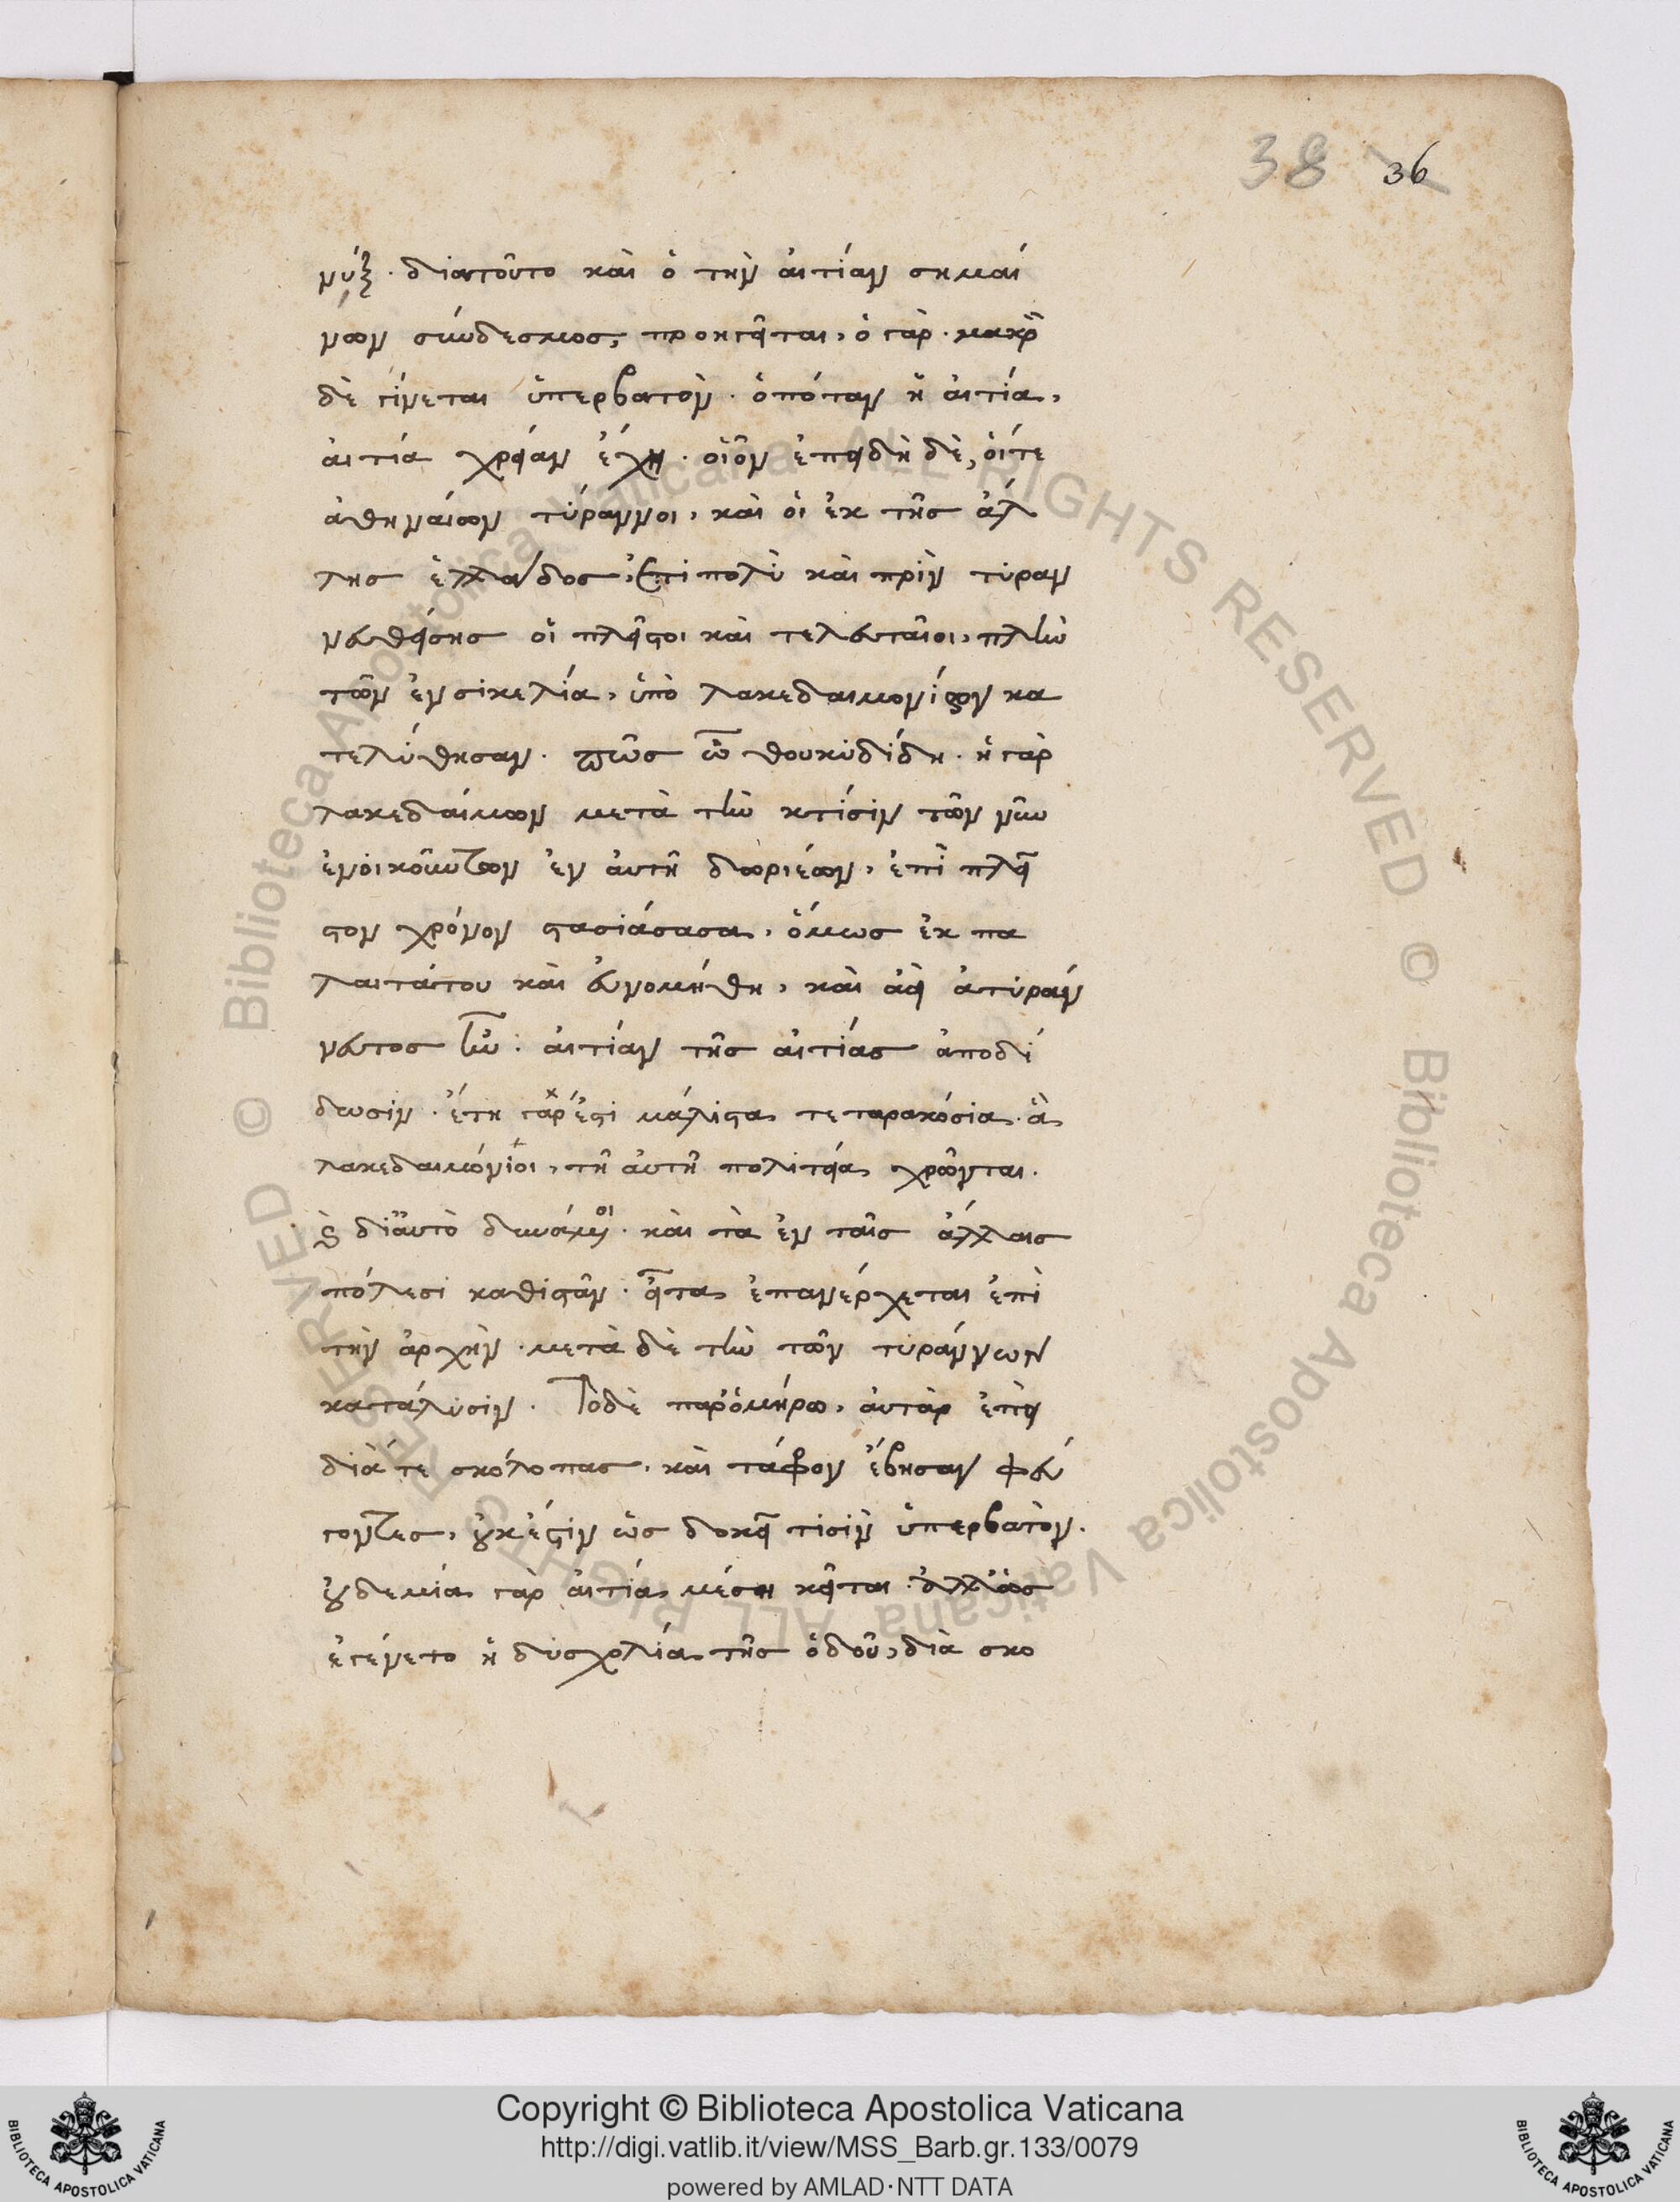 38 36
νύξ· διατοῦτο καὶ ὁ τὴν αἰτίαν σημαί
νων σύνδεσμος, προηγεῖται, ὁ γὰρ· μακρὸ
δὲ γίνεται ὑπερβατὸν· ὁπόταν ἡ αἰτία,
αἰτία χρείαν ἔχη· οἷον ἐπειδὴ δὲ, οἵτε
ἀθηναίων τύραννοι, καὶ οἱ ἐκ τῆς ἀλ
λης ἑλλάδος, ἐπιπολὺ καὶ πρὶν τυραν
νευθείσης οἱ πλεῖστοι καὶ τελευταῖοι, πλὴν
τῶν ἐν σικελία, ὑπὸ λακεδαιμονίων κα
τελύθησαν· πῶς ὦ θουκυδίδη· ἡ γὰρ
λακεδαίμων μετὰ τὴν κτίσιν τῶν νῦν
ἐνοικούντων ἐν αὐτῆ δωριέων, ἐπὶ πλεῖ
στον χρόνον στασιάσασα, ὅμως ἐκ πα
λαιτάτου καὶ εὐνομήθη, καὶ ἀεὶ ἀτυράν
νευτος ἦν· αἰτίαν τῆς αἰτίας ἀποδί
δωσιν· ἔτη γὰρ ἐστι μάλιστα τετρακόσια· ἃ
λακεδαιμόνιοι, τῆ αὐτῆ πολιτεία χρῶνται·
καὶ δι' αὐτὸ δυνάμενοι· καὶ τὰ ἐν ταῖς ἄλλαις
πόλεσι καθιστᾶν· εἶτα ἐπανέρχεται ἐπὶ
τὴν ἀρχὴν· μετὰ δὲ τὴν τῶν τυράννων
κατάλυσιν· Τὸ δὲ παρ' ὁμήρω, αὐτὰρ ἐπεὶ
διά τε σκόλοπας, καὶ τάφρον ἔβησαν φεύ
γοντες, οὐκ ἔστιν ὡς δοκεῖ τισὶν ὑπερβατὸν·
οὐδεμία γὰρ αἰτία μέση κεῖται· ἀλλ' ὡς
ἐγένετο ἡ δυσχολία τῆς ὁδοῦ, διὰ σκο
Copyright © Biblioteca Apostolica Vaticana
http://digi.vatlib.it/view/MSS_Barb.gr.133/0079
powered by AMLAD·NTT DATA